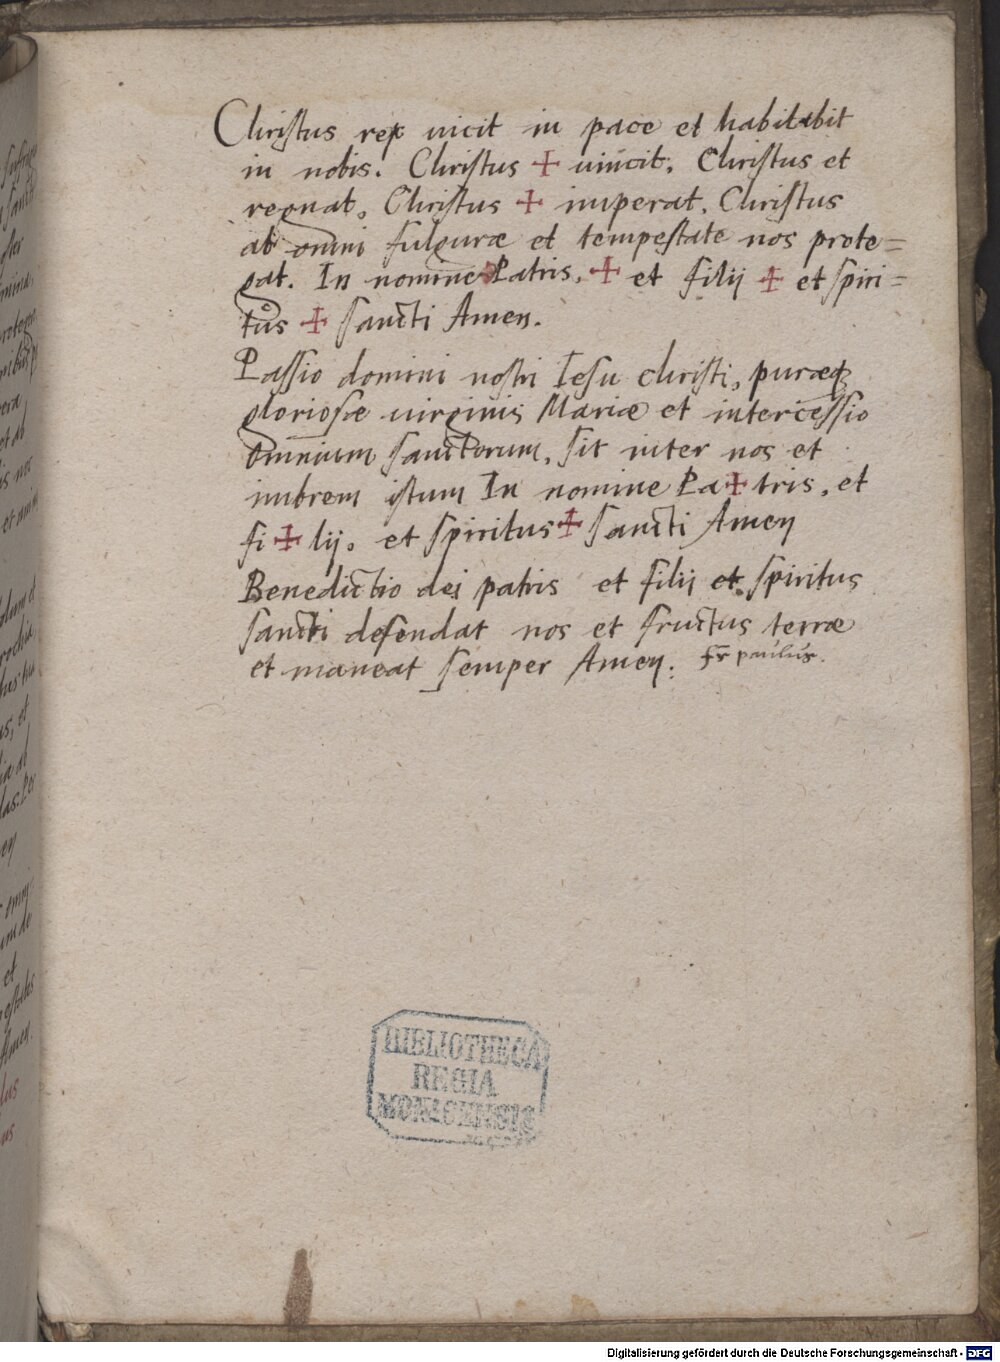 Christus rex uicit in pace et habitabit
in nobis. Christus ✠ uincit. Christus et
regnat. Christus ✠ imperat. Christus
ab omni fulguræ et tempestate nos prote=
gat. In nomine Patris. ✠ et filij ✠ et spiri=
tůs ✠ sancti Amen.
Passio domini nostri Iesu christi, puræq;
gloriosæ uirginis Mariæ et intercessio
omnium sanctorum, sit inter nos et
imbrem istum In nomine Pa✠tris, et
fi✠lij. et spiritus ✠ sancti Amen
Benedictio dei patris et filij et spiritus
sancti defendat nos et fructus terræ
et maneat semper Amen. fr paulus.
BIBLIOTHECA
REGIA
MONACENSIS
Digitalisierung gefördert durch die Deutsche Forschungsgemeinschaft - DFG